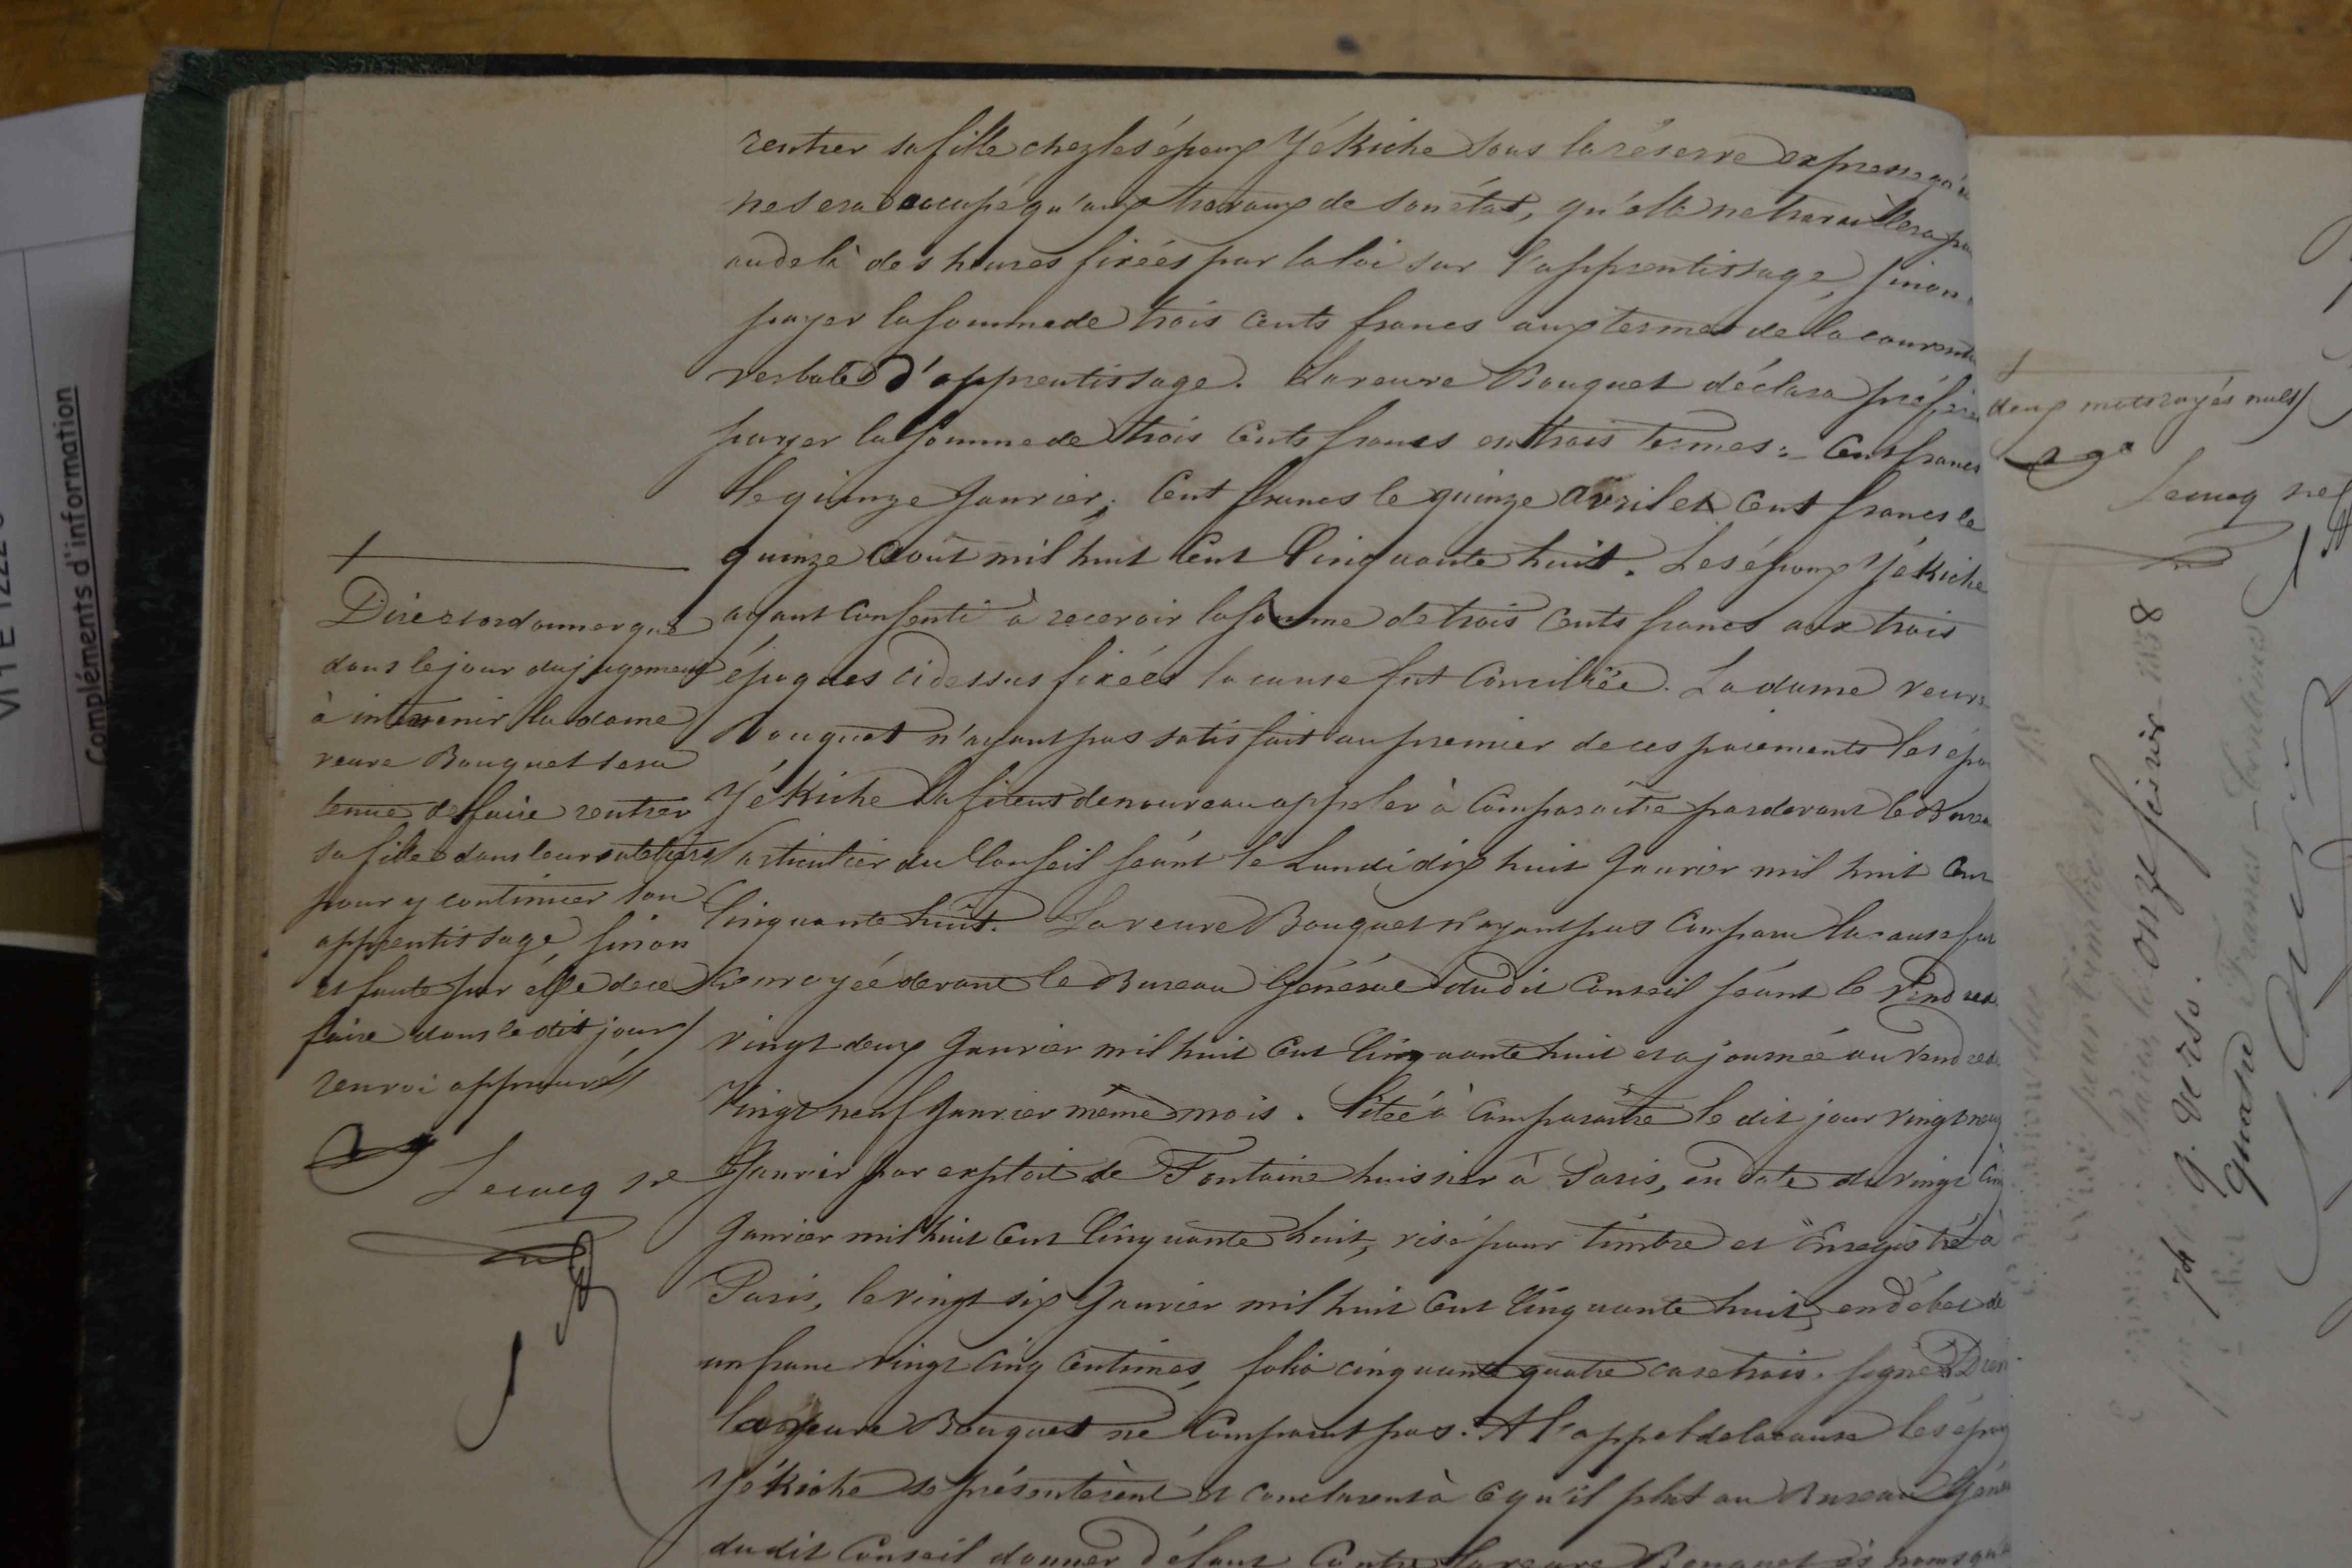 rentrer sa fille chez les époux Yékiche sous la réserve expresse qu'
ne sera occupé qu'aux travaux de son état, qu'elle ne travaillera pa
audelà des heures fixées par la loi sur l'apprentissage, sinon
payer la somme de trois cents francs aux termes de la convent
verbale d'apprentissage. La veuve Bouquet déclara préfére
payer la somme de trois cents francs en trois termes : Cent francs
le quinze Janvier, Cent francs le quinze avril et Cent francs le
quinze août mil huit Cent Cinquante huit. Les époux Yékiche
ayant Consenti à recevoir la somme de trois Cents francs aux trois
époques ci dessus fixées la cause fut Conciliée. La dame veuve
Bouquet n'ayant pas satisfait au premier de ces paiements les épo
Yékiche la firent de nouveau appeler à Comparaitre pardevant le Burea
Particulier du Conseil séant le Lundi dix huit Janvier mil huit Cent
Cinquante huit. La veuve Bouquet n'ayant pas Comparu la cause fut
renvoyée devant le Bureau Général dudit Conseil séant le Vendred
vingt deux Janvier mil huit Cent Cinquante huit et ajournée au Vendred
Vingt neuf Janvier même mois. Citée à Comparaitre le dit jour vingt neuf
Janvier par exploit de Fontaine huissier à Paris, en date du vingt Cinq
Janvier mil huit Cent Cinquante huit, visé pour timbre et Enregistré à
Paris, le vingt six Janvier mil huit Cent Cinquante huit, en débet de
un franc vingt cinq Centimes, folio cinquante quatre case trois. signé
la veuve Bouquet ne Comparut pas. A l'appel de la cause les épou
Yékiche se présentèrent et conclurent à ce qu'il plut au Bureau Géné
dudit Conseil donner défaut Contre la veuve Bouquet ès noms qu'
Dire et ordonner que
dans le jour du jugement
à intervenir la dame
veuve Bouquet sera
tenue de faire rentrer
sa fille dans leurs ateliers
pour y continuer son
apprentissage, sinon
et faute par elle de ce
faire dans le dit jour
renvoi approuvé
Lecucq
deux mots rayés nuls
Lecucq
visé pour timbre et
Paris le onze février 1858
74 9. verso.
quatre Francs - Centimes
Compléments d'information